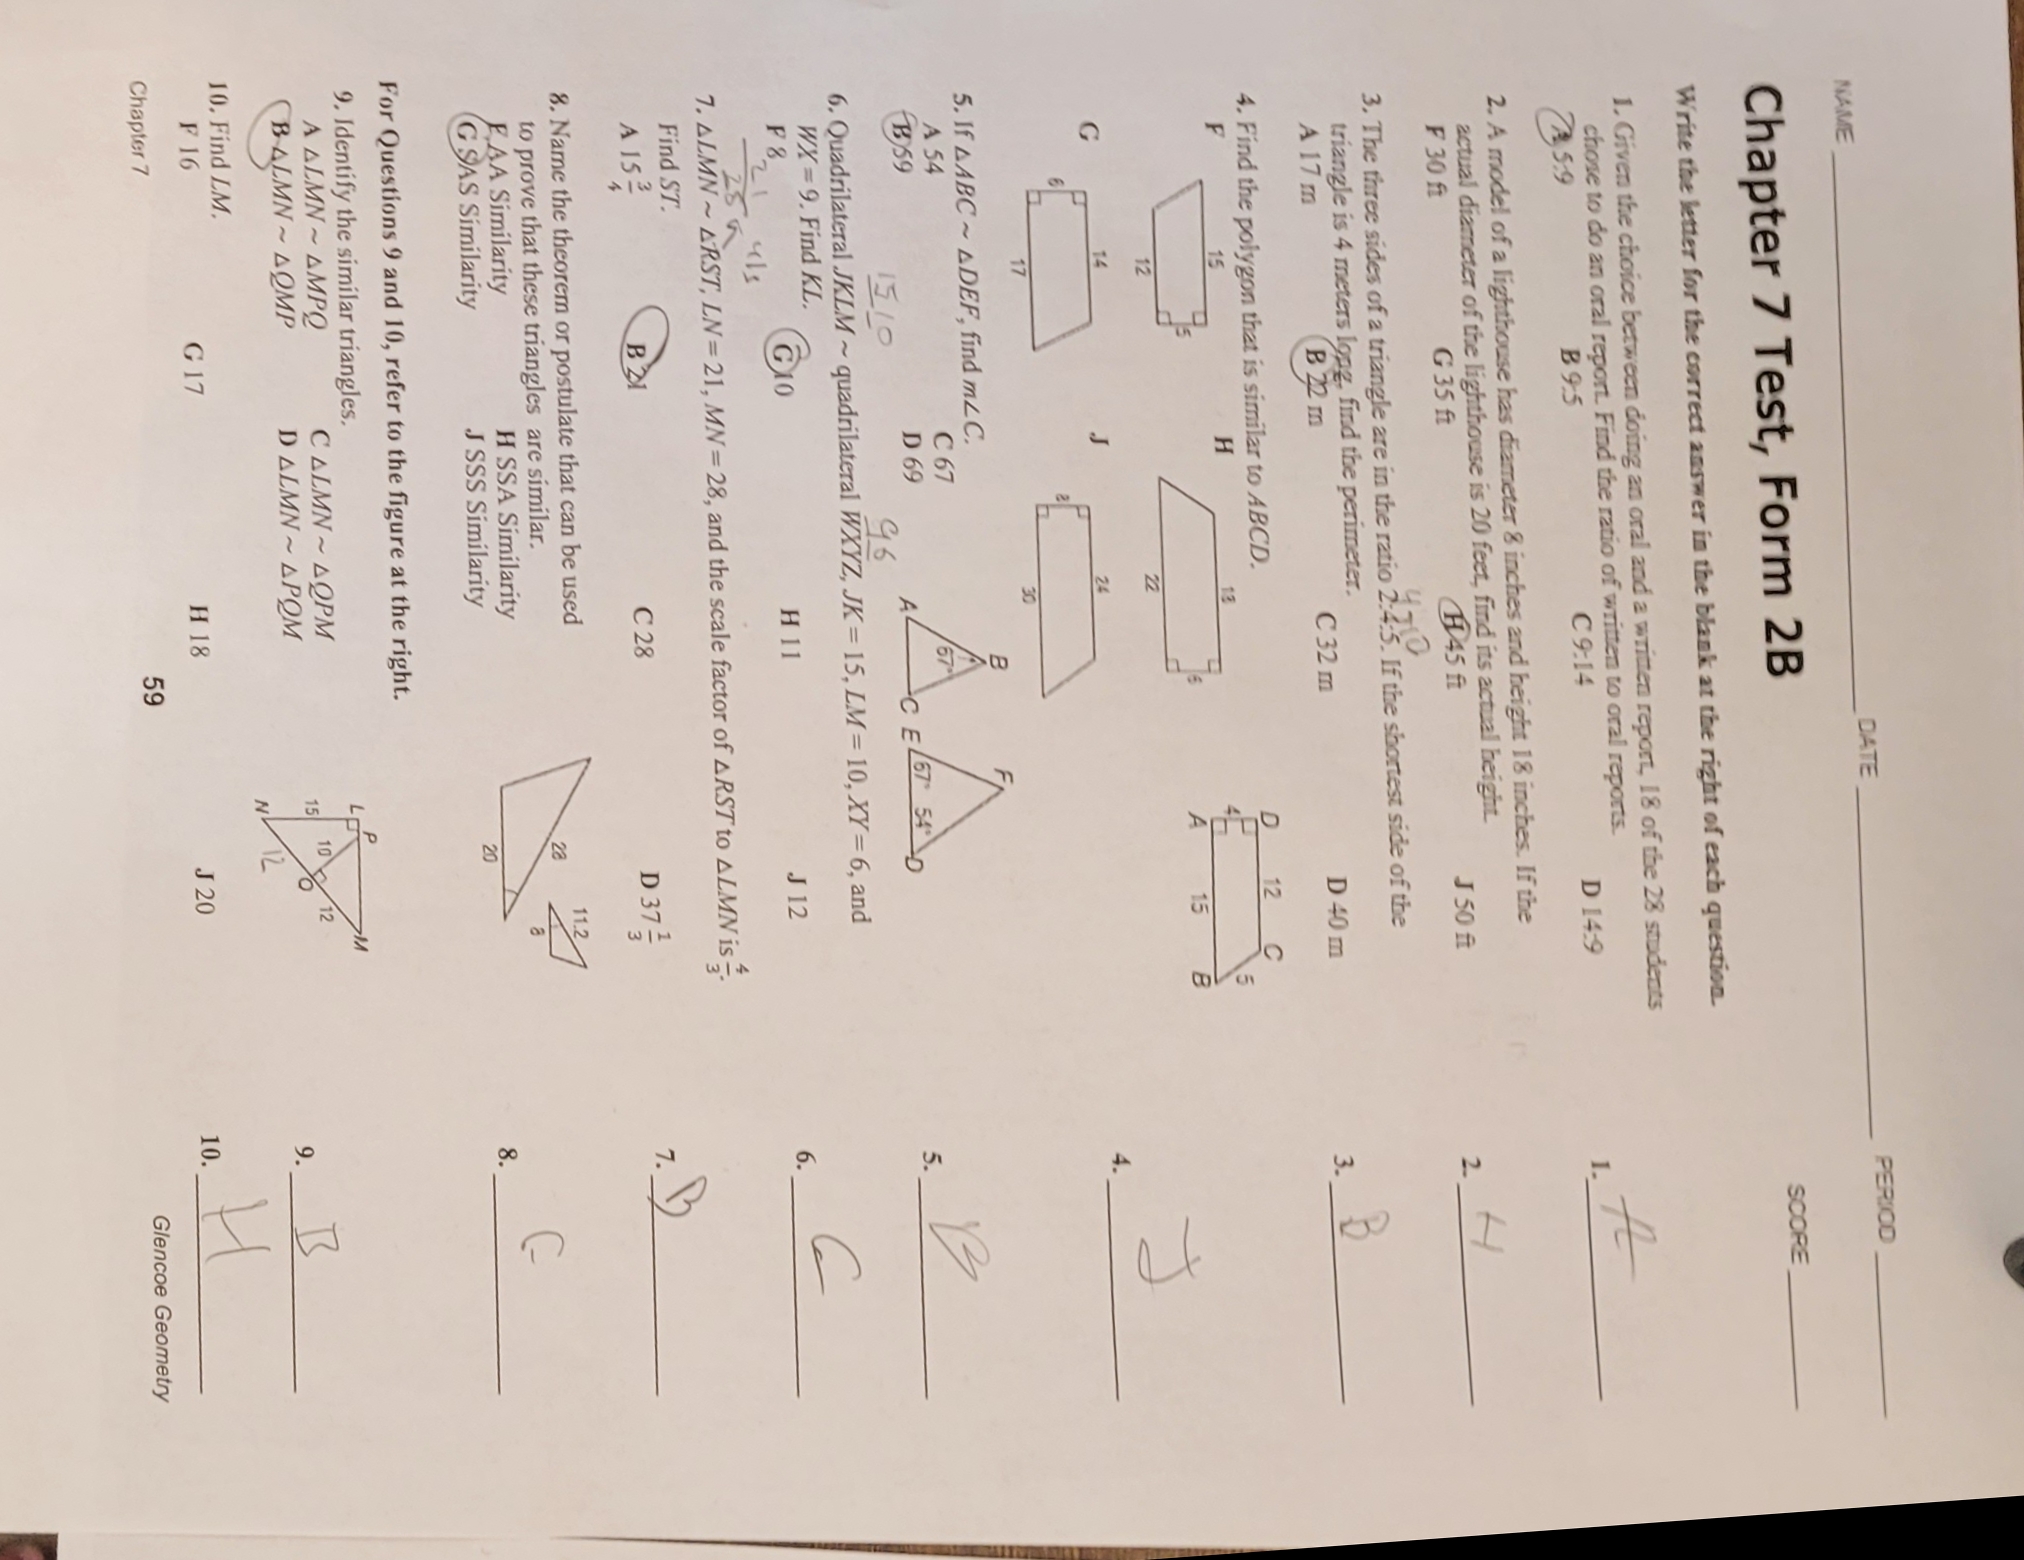 NAME DATE PERIOD
SCORE
Chapter 7 Test, Form 2B
Write the letter for the correct answer in the blank at the right of each question.
1. Given the choice between doing an oral and a written report, 18 of the 28 students
chose to do an oral report. Find the ratio of written to oral reports.
A 5:9 B 9:5 C 9:14 D 14:9
1. A
2. A model of a lighthouse has diameter 8 inches and height 18 inches. If the
actual diameter of the lighthouse is 20 feet, find its actual height.
F 30 ft G 35 ft H 45 ft J 50 ft
2. H
4 10
3. The three sides of a triangle are in the ratio 2:4:5. If the shortest side of the
triangle is 4 meters long, find the perimeter.
A 17 m B 22 m C 32 m D 40 m
3. B
4. Find the polygon that is similar to ABCD.
F 15 5 12
H 18 6 22
D 12 C 4 5 A 15 B
G 14 6 17
J 24 8 30
4. J
5. If △ABC ~ △DEF, find m∠C.
A 54 C 67
B 59 D 69
B 67° A C F E 67° 54° D
5. B
15 10
9 6
6. Quadrilateral JKLM ~ quadrilateral WXYZ, JK = 15, LM = 10, XY = 6, and
WX = 9. Find KL.
F 8 G 10 H 11 J 12
6. G
21
28
7. △LMN ~ △RST, LN = 21, MN = 28, and the scale factor of △RST to △LMN is 4/3.
Find ST.
A 15 3/4 B 21 C 28 D 37 1/3
7. B
8. Name the theorem or postulate that can be used
to prove that these triangles are similar.
F AA Similarity H SSA Similarity
G SAS Similarity J SSS Similarity
28 20 11.2 8
8. G
For Questions 9 and 10, refer to the figure at the right.
9. Identify the similar triangles.
A △LMN ~ △MPQ C △LMN ~ △QPM
B △LMN ~ △QMP D △LMN ~ △PQM
L P M 15 10 12 Q N 12
9. B
10. Find LM.
F 16 G 17 H 18 J 20
10. H
Chapter 7 59 Glencoe Geometry